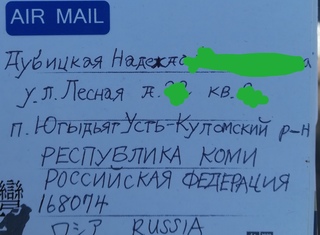 AIR MAIL
Дубицкая Надежд
ул. Лесная д. кв.
п. Югыдъяг Усть-Куломский р-н
РЕСПУБЛИКА КОМИ
РОССИЙСКАЯ ФЕДЕРАЦИЯ
168074
ロシア RUSSIA